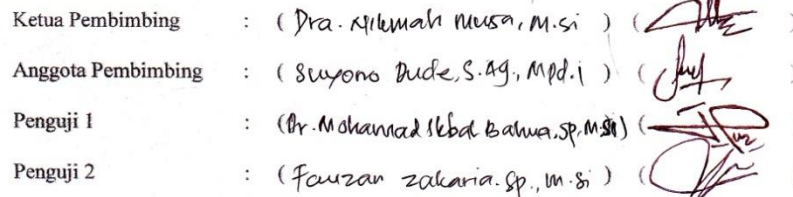 Ketua Pembimbing : ( Dra. Nikmah Musa, M.si ) ( )
Anggota Pembimbing : ( Suyono Dude, S.Ag., Mpd.i ) ( )
Penguji 1 : (Dr. Mohamad Ikbal Bahua, SP, M.Si) (
Penguji 2 : ( Fauzan zakaria. Sp., M.si ) (